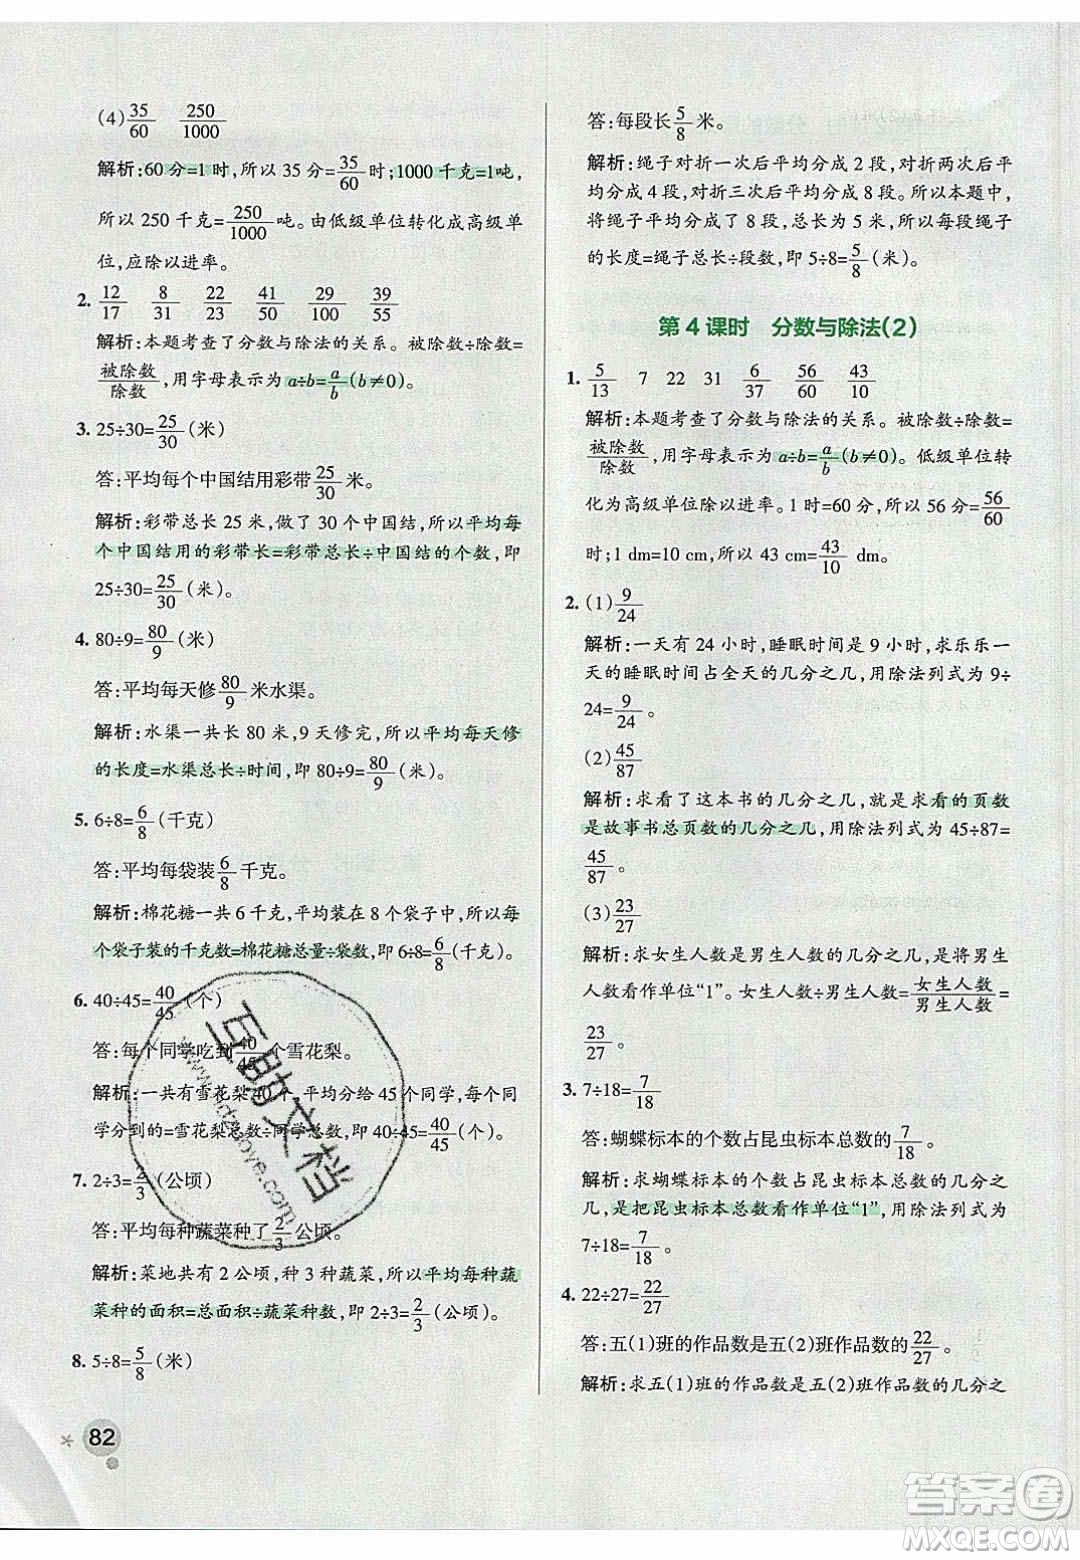 (4) 35/60  250/1000
解析:60 分=1 时,所以 35 分=35/60时;1000 千克=1吨,
所以 250 千克=250/1000吨。由低级单位转化成高级单
位,应除以进率。
2. 12/17  8/31  22/23  41/50  29/100  39/55
解析:本题考查了分数与除法的关系。被除数÷除数=
被除数/除数,用字母表示为 a÷b=a/b(b≠0)。
3. 25÷30=25/30(米)
答:平均每个中国结用彩带25/30米。
解析:彩带总长 25 米,做了 30 个中国结,所以平均每
个中国结用的彩带长=彩带总长÷中国结的个数,即
25÷30=25/30(米)。
4. 80÷9=80/9(米)
答:平均每天修80/9米水渠。
解析:水渠一共长 80 米,9 天修完,所以平均每天修
的长度=水渠总长÷时间,即 80÷9=80/9(米)。
5. 6÷8=6/8(千克)
答:平均每袋装6/8千克。
解析:棉花糖一共 6 千克,平均装在 8 个袋子中,所以每
个袋子装的千克数=棉花糖总量÷袋数,即 6÷8=6/8(千克)。
6. 40÷45=40/45(个)
答:每个同学吃到40/45个雪花梨。
解析:一共有雪花梨 40 个,平均分给 45 个同学,每个同
学分到的=雪花梨总数÷同学总数,即 40÷45=40/45(个)。
7. 2÷3=2/3(公顷)
答:平均每种蔬菜种了2/3公顷。
解析:菜地共有 2 公顷,种 3 种蔬菜,所以平均每种蔬
菜种的面积=总面积÷蔬菜种数,即 2÷3=2/3(公顷)。
8. 5÷8=5/8(米)
82
答:每段长5/8米。
解析:绳子对折一次后平均分成 2 段,对折两次后平
均分成 4 段,对折三次后平均分成 8 段。所以本题中,
将绳子平均分成了 8 段,总长为 5 米,所以每段绳子
的长度=绳子总长÷段数,即 5÷8=5/8(米)。
第 4 课时 分数与除法(2)
1. 5/13  7  22  31  6/37  56/60  43/10
解析:本题考查了分数与除法的关系。被除数÷除数=
被除数/除数,用字母表示为 a÷b=a/b(b≠0)。低级单位转
化为高级单位除以进率。1 时=60 分,所以 56 分=56/60
时;1 dm=10 cm,所以 43 cm=43/10 dm。
2. (1)9/24
解析:一天有 24 小时,睡眠时间是 9 小时,求乐乐一
天的睡眠时间占全天的几分之几,用除法列式为 9÷
24=9/24。
(2)45/87
解析:求看了这本书的几分之几,就是求看的页数
是故事书总页数的几分之几,用除法列式为 45÷87=
45/87。
(3)23/27
解析:求女生人数是男生人数的几分之几,是将男生
人数看作单位“1”。女生人数÷男生人数=女生人数/男生人数=
23/27。
3. 7÷18=7/18
答:蝴蝶标本的个数占昆虫标本总数的7/18。
解析:求蝴蝶标本的个数占昆虫标本总数的几分之
几,是把昆虫标本总数看作单位“1”,用除法列式为
7÷18=7/18。
4. 22÷27=22/27
答:五(1)班的作品数是五(2)班作品数的22/27。
解析:求五(1)班的作品数是五(2)班作品数的几分之
互助文档
答案圈
MXQE.COM